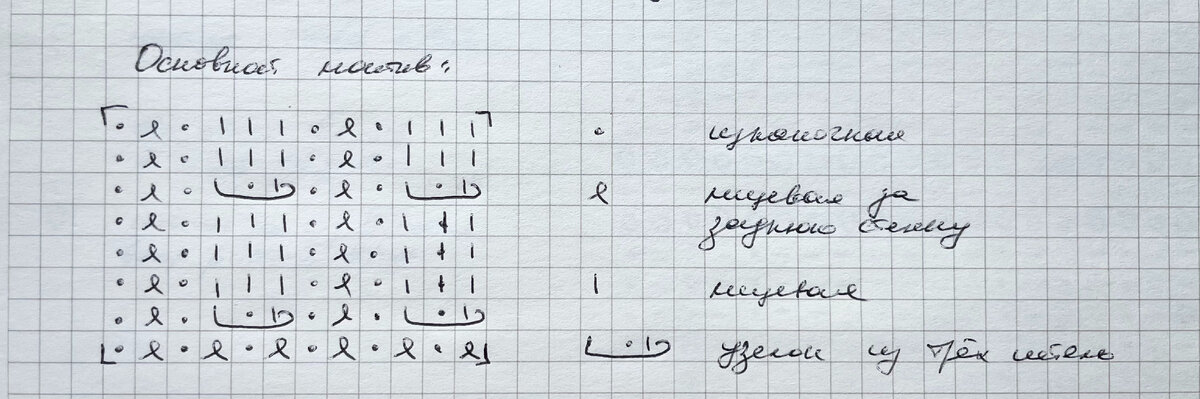 Основной мотив:
изнаночная
лицевая за
заднюю стенку
лицевая
узелок из трёх петель